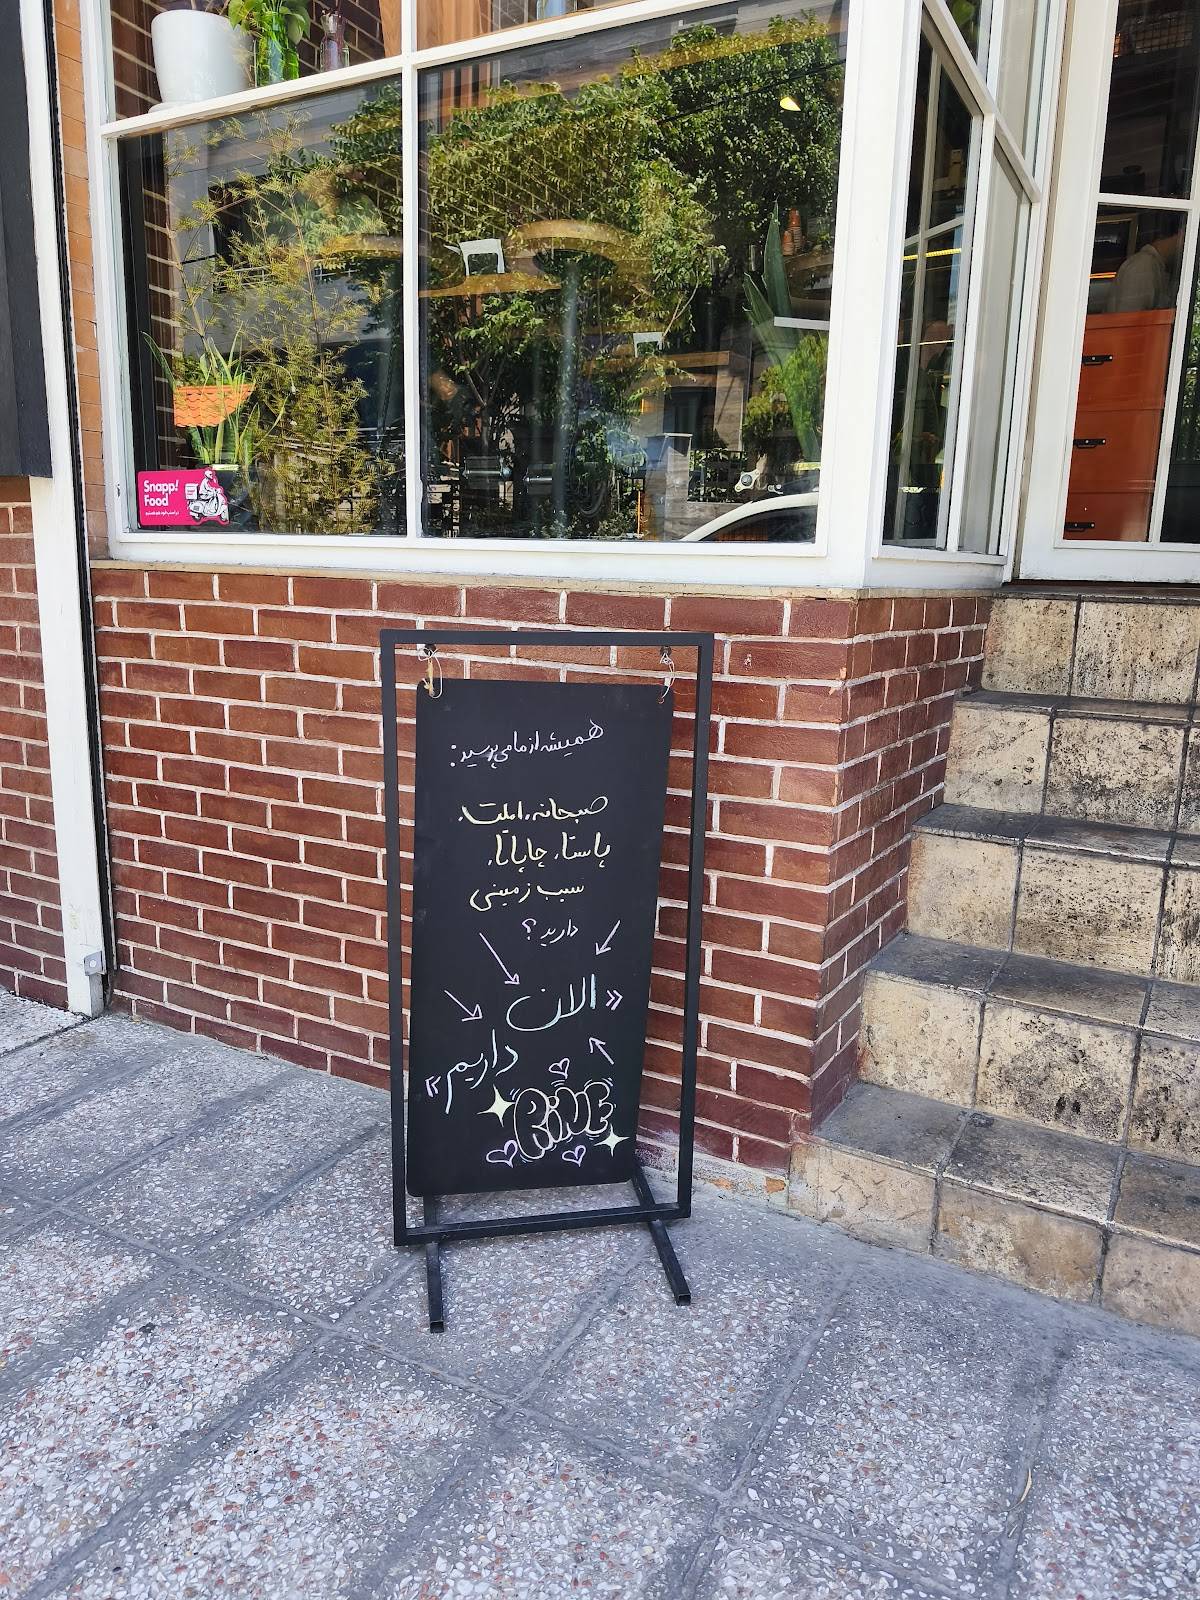 Snapp!
Food
همیشه از ما می‌پرسید:
صبحانه، املت،
پاستا، چاپاتا،
سیب زمینی
دارید؟
«الان
داریم»
RiNE